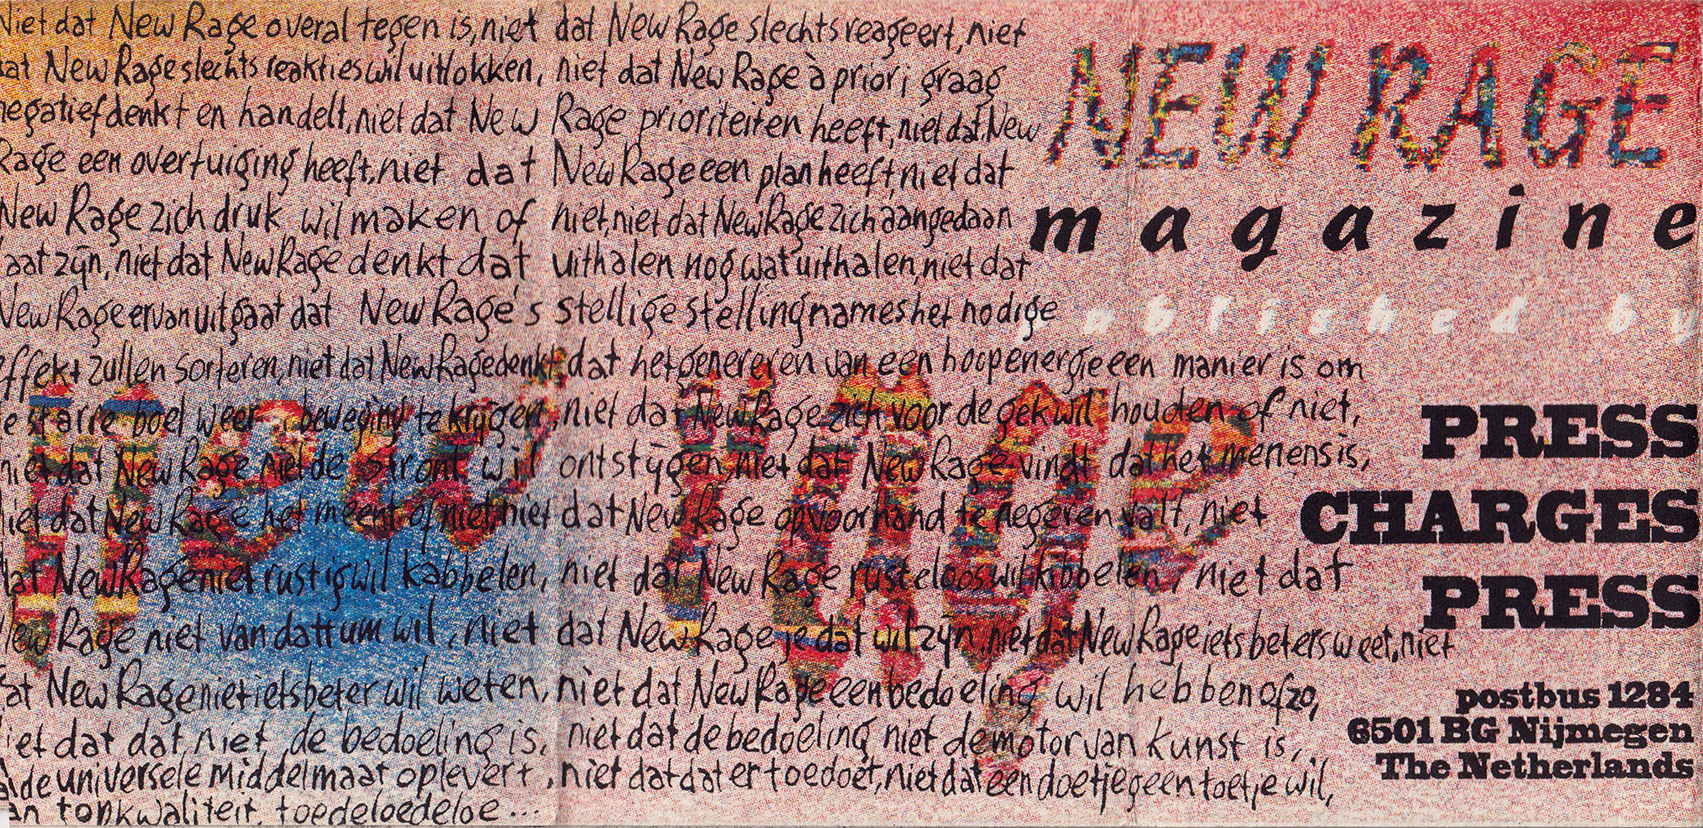 Niet dat New Rage overal tegen is, niet dat New Rage slechts reageert, niet
dat New Rage slechts reakties wil uitlokken, niet dat New Rage à priori graag
negatief denkt en handelt, niet dat New Rage prioriteiten heeft, niet dat New
Rage een overtuiging heeft, niet dat New Rage een plan heeft, niet dat
New Rage zich druk wil maken of niet, niet dat New Rage zich aangedaan
laat zijn, niet dat New Rage denkt dat uithalen nog wat uithalen, niet dat
New Rage ervan uitgaat dat New Rage's stellige stellingnames het nodige
effekt zullen sorteren, niet dat New Rage denkt dat het genereren van een hoop energie een manier is om
de starre boel weer in beweging te krijgen, niet dat New Rage zich voor de gek wil houden of niet,
niet dat New Rage niet de stront wil ontstijgen, niet dat New Rage vindt dat het menens is,
niet dat New Rage het meent of niet, niet dat New Rage op voorhand te negeren valt, niet
dat New Rage niet rustig wil kabbelen, niet dat New Rage rusteloos wil kibbelen, niet dat
New Rage niet van dattum wil, niet dat New Rage je dat wil zijn, niet dat New Rage iets beters weet, niet
dat New Rage niet iets beter wil weten, niet dat New Rage een bedoeling wil hebben of zo,
niet dat dat niet de bedoeling is, niet dat de bedoeling niet de motor van kunst is,
de universele middelmaat oplevert, niet dat dat er toe doet, niet dat een doetje geen toetje wil,
an tonkwaliteit, toedeloedeloe...
new rage
NEW RAGE
magazine
published by
PRESS
CHARGES
PRESS
postbus 1284
6501 BG Nijmegen
The Netherlands